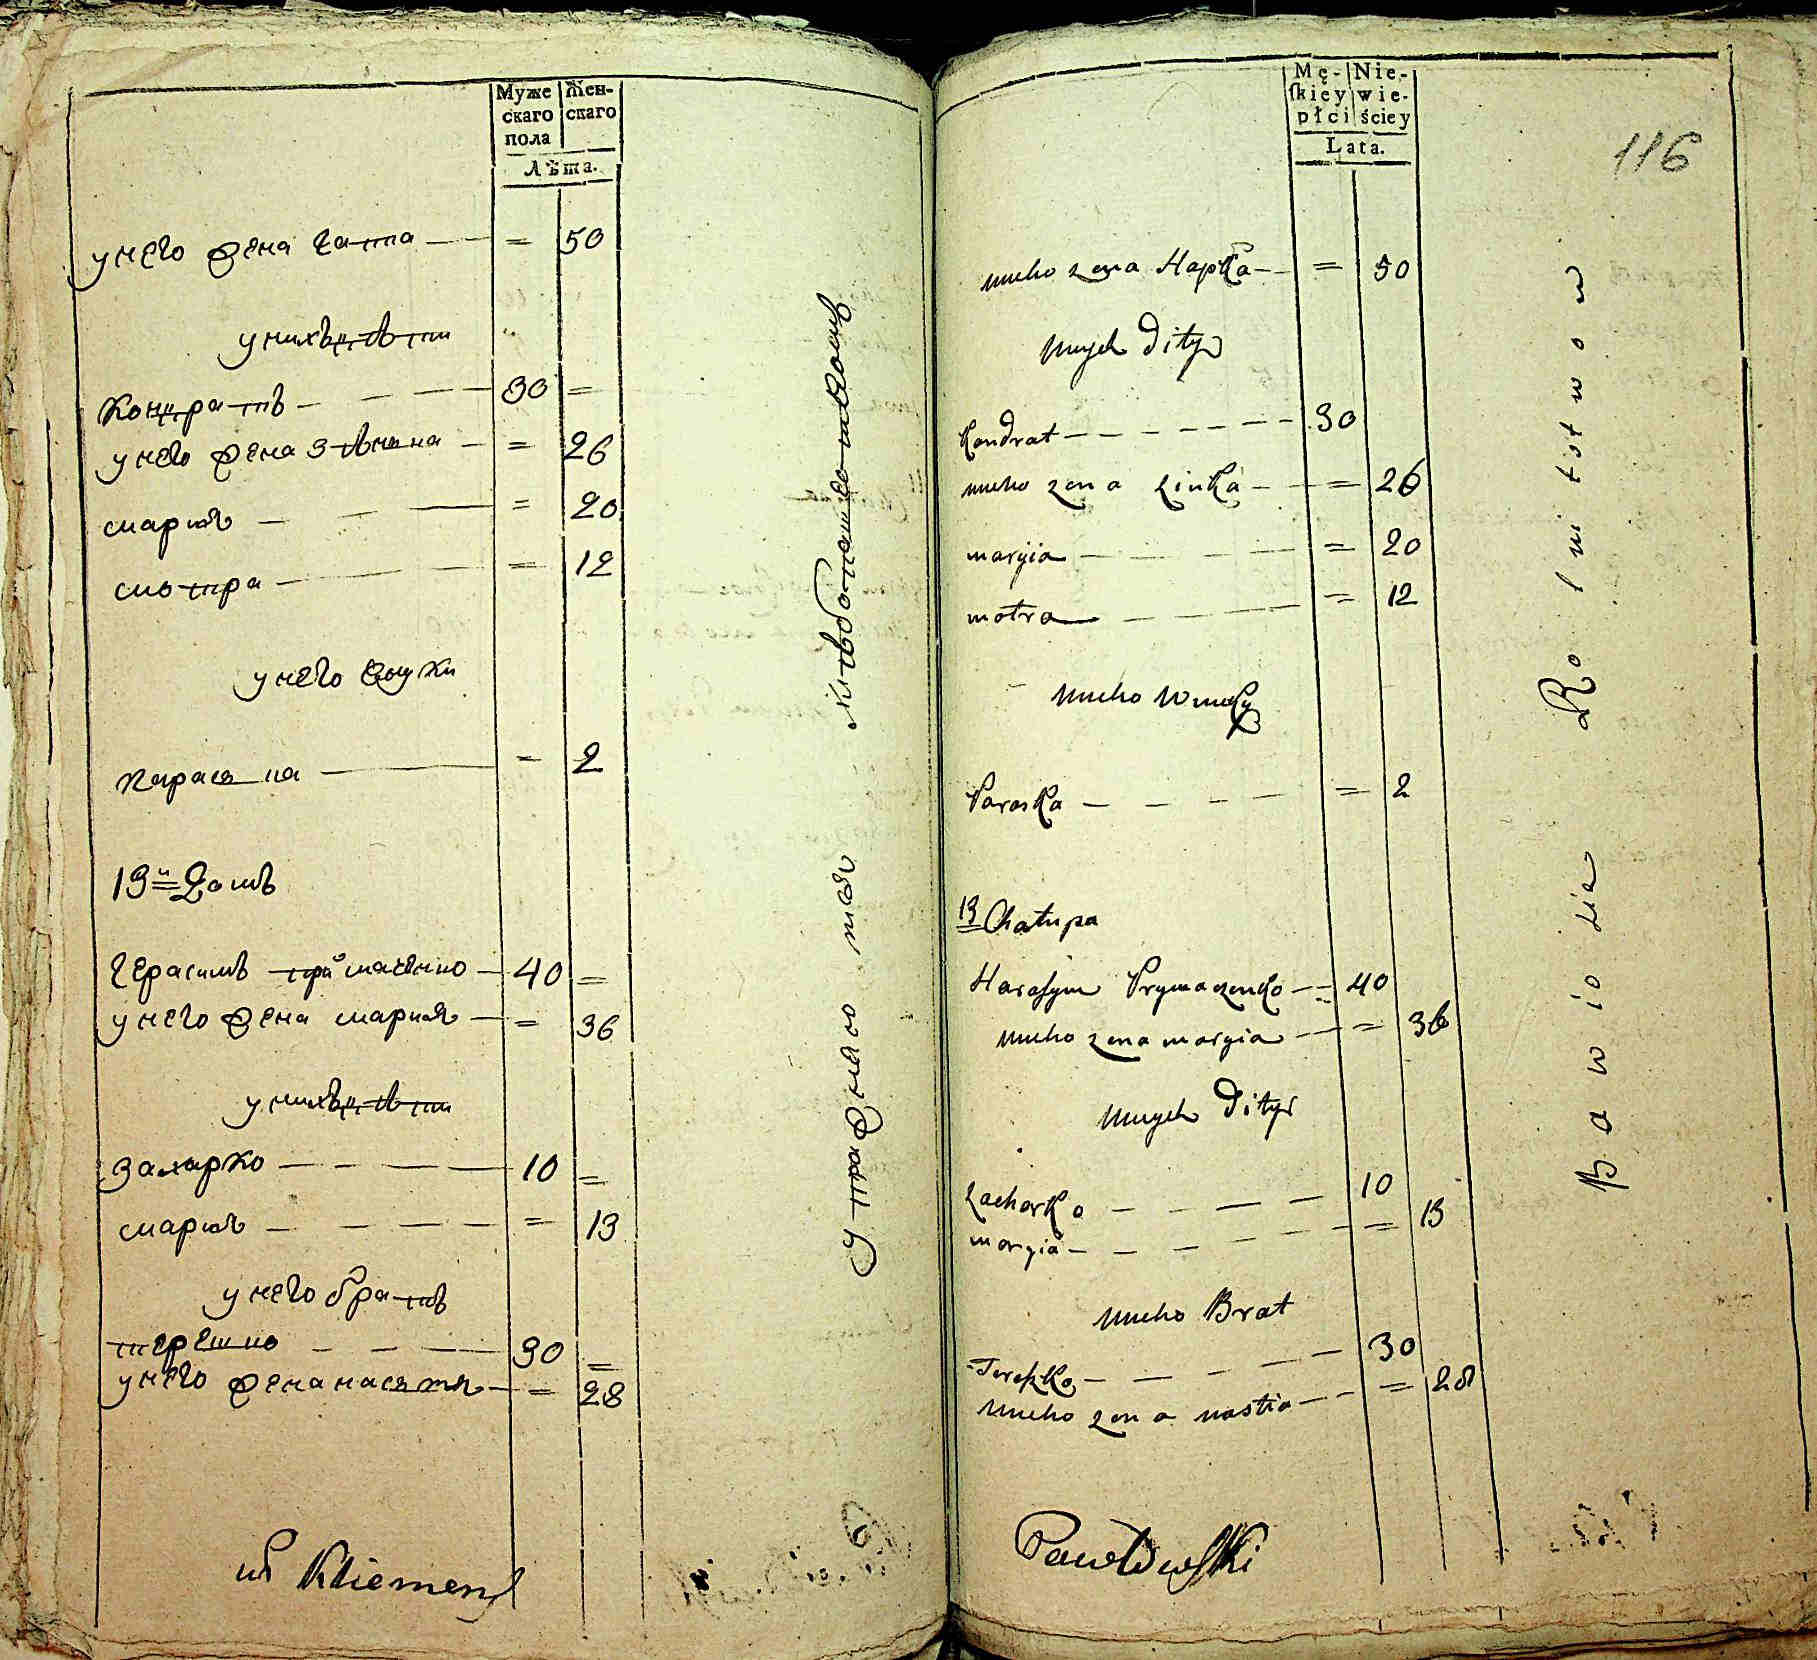 Муже
скаго
пола
Жен-
скаго
Лѣта.
у него жена гапка — = 50
у нихъ дѣти
кондратъ — 30 =
у него жена зѣнька — = 26
мария — = 20
мотра — = 12
у него внуки
параска — = 2
13й домъ
герасимъ примаченко — 40 =
у него жена мария — = 36
у нихъ дѣти
захарко — 10 =
мария — = 13
у него братъ
терешко — 30 =
у него жена настя — = 28
хлѣбопашеством
упражняются
Kliemens
Mę-
skiey
płci
Nie-
wie-
ściey
Lata.
116
uieho zena Hapka — = 50
unych dity
Kondrat — 30
uieho zena Zinka — = 26
maryia — = 20
motra — = 12
uieho wnuky
Paraska — = 2
13 Chatupa
Harasym Prymaczenko — 40
uieho zena maryia — = 36
unych dity
Zacharko — 10
maryia — = 13
uieho Brat
Tereszko — 30
uieho zena nastia — = 28
Bawio sia Rolnitstwow
Pawłowski